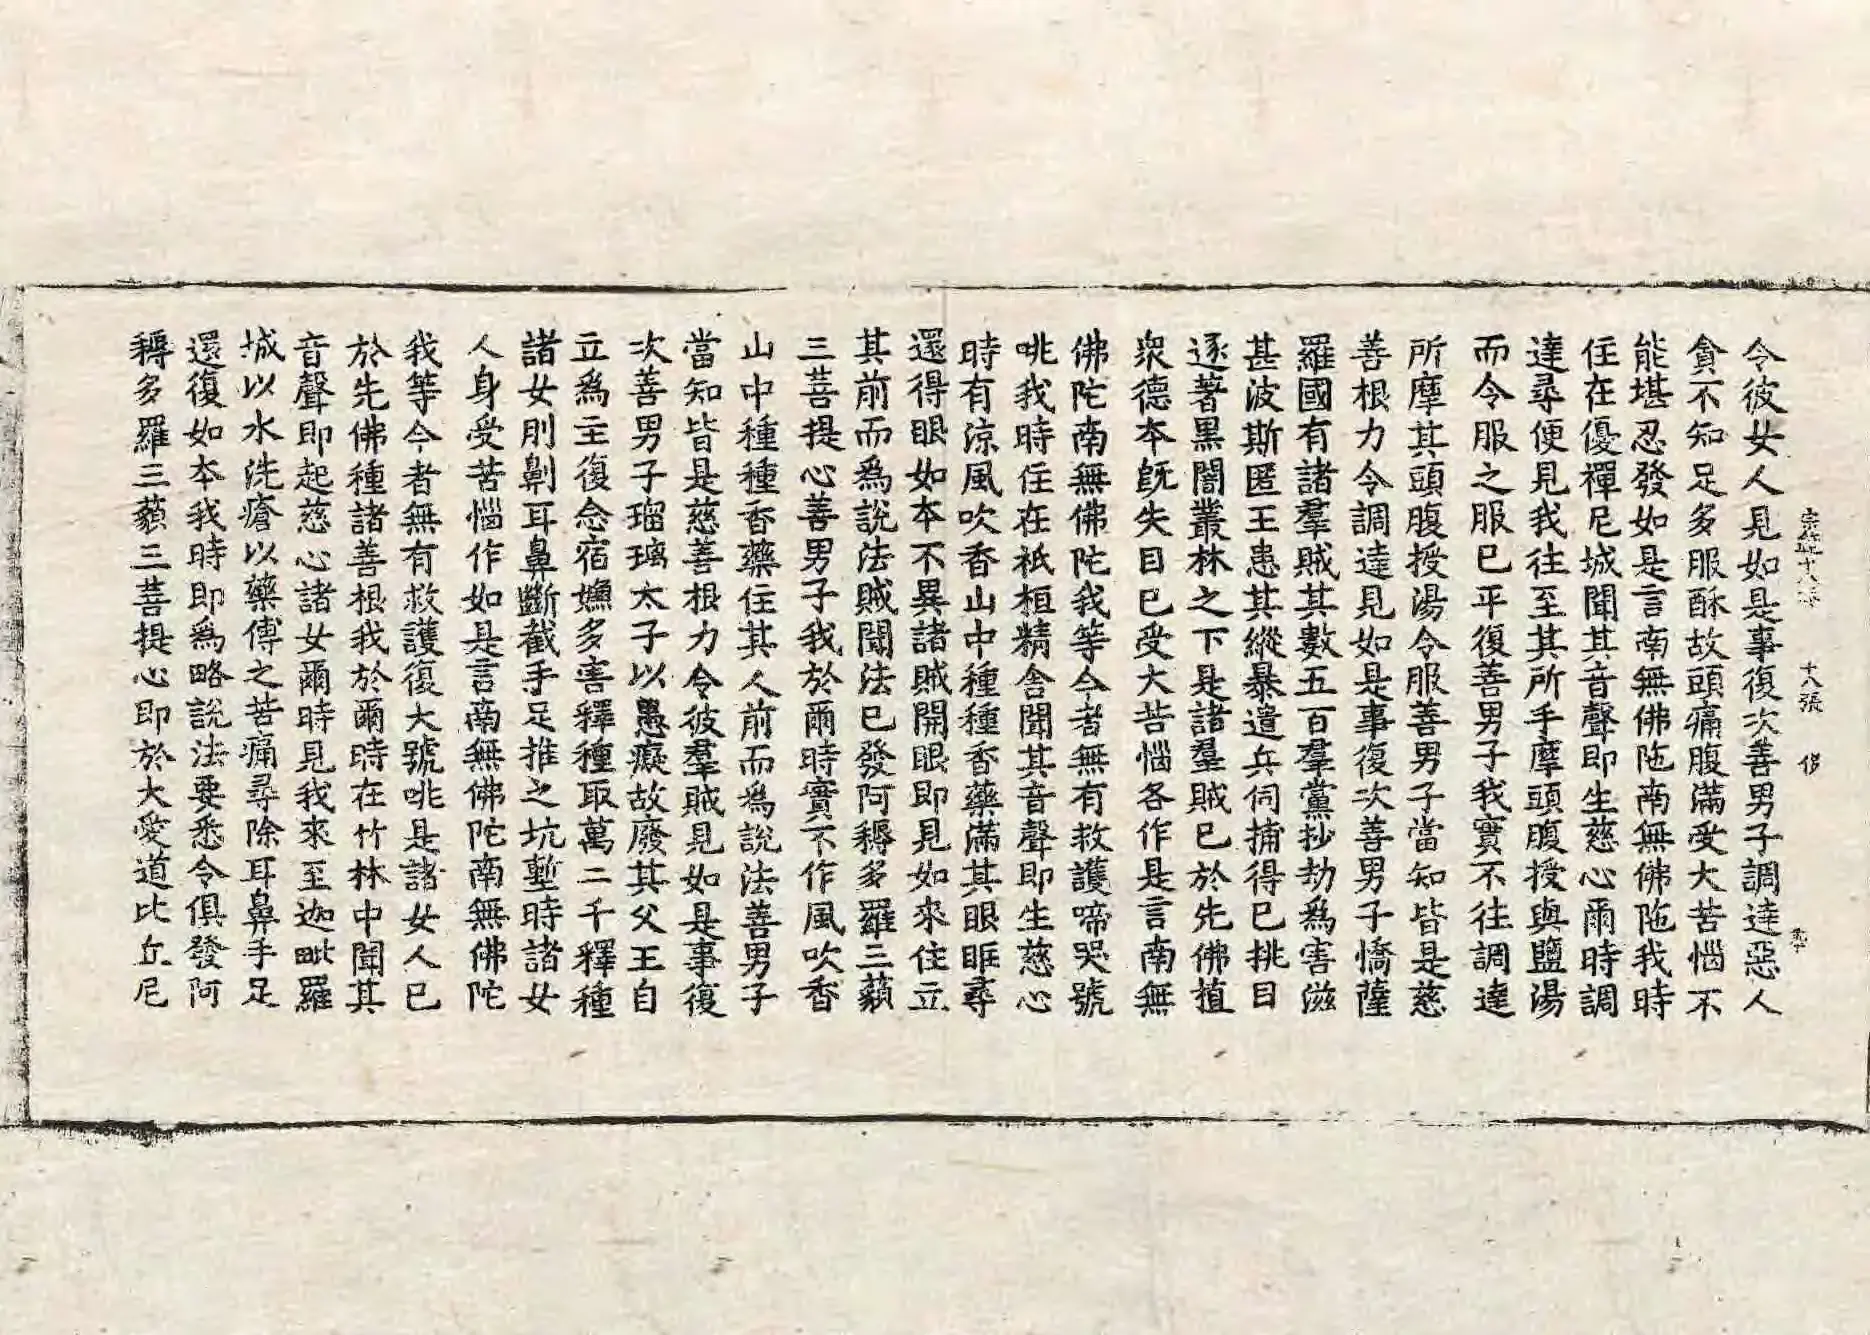 令彼女人見如是事復次善男子調達惡人
貪不知足多服酥故頭痛腹滿受大苦惱不
能堪忍發如是言南無佛陁南無佛陁我時
住在優禪尼城聞其音聲即生慈心爾時調
達尋便見我往至其所手摩頭腹授與鹽湯
而令服之服已平復善男子我實不往調達
所摩其頭腹授湯令服善男子當知皆是慈
善根力令調達見如是事復次善男子憍薩
羅國有諸羣賊其數五百羣黨抄劫為害滋
甚波斯匿王患其縱暴遣兵伺捕得已挑目
逐著黑闇叢林之下是諸羣賊已於先佛植
衆德本旣失目已受大苦惱各作是言南無
佛陀南無佛陀我等今者無有救護啼哭號
咷我時住在祇桓精舍聞其音聲即生慈心
時有涼風吹香山中種種香藥滿其眼眶尋
還得眼如本不異諸賊開眼即見如來住立
其前而為說法賊聞法已發阿耨多羅三藐
三菩提心善男子我於爾時實不作風吹香
山中種種香藥住其人前而為說法善男子
當知皆是慈善根力令彼羣賊見如是事復
次善男子瑠璃太子以愚癡故廢其父王自
立為主復念宿嫌多害釋種取萬二千釋種
諸女刖劓耳鼻斷截手足推之坑塹時諸女
人身受苦惱作如是言南無佛陀南無佛陀
我等今者無有救護復大號咷是諸女人已
於先佛種諸善根我於爾時在竹林中聞其
音聲即起慈心諸女爾時見我來至迦毗羅
城以水洗瘡以藥傅之苦痛尋除耳鼻手足
還復如本我時即為略說法要悉令俱發阿
耨多羅三藐三菩提心即於大愛道比丘尼
十八張